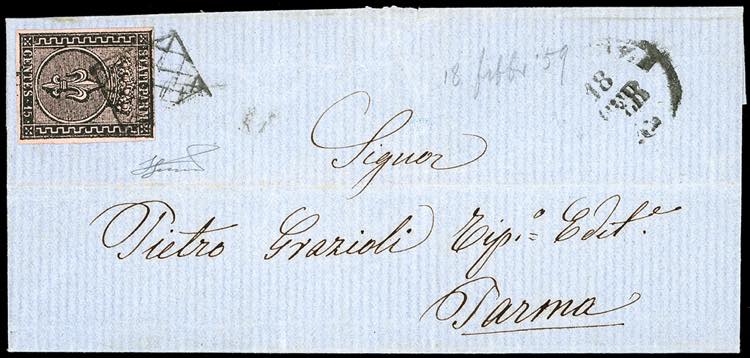 STATI PARM.
CENTES. 15
18 febbr. 59
18
FEB
R 5
Signor
Pietro Grazioli Tip.º = Edit.e
Parma